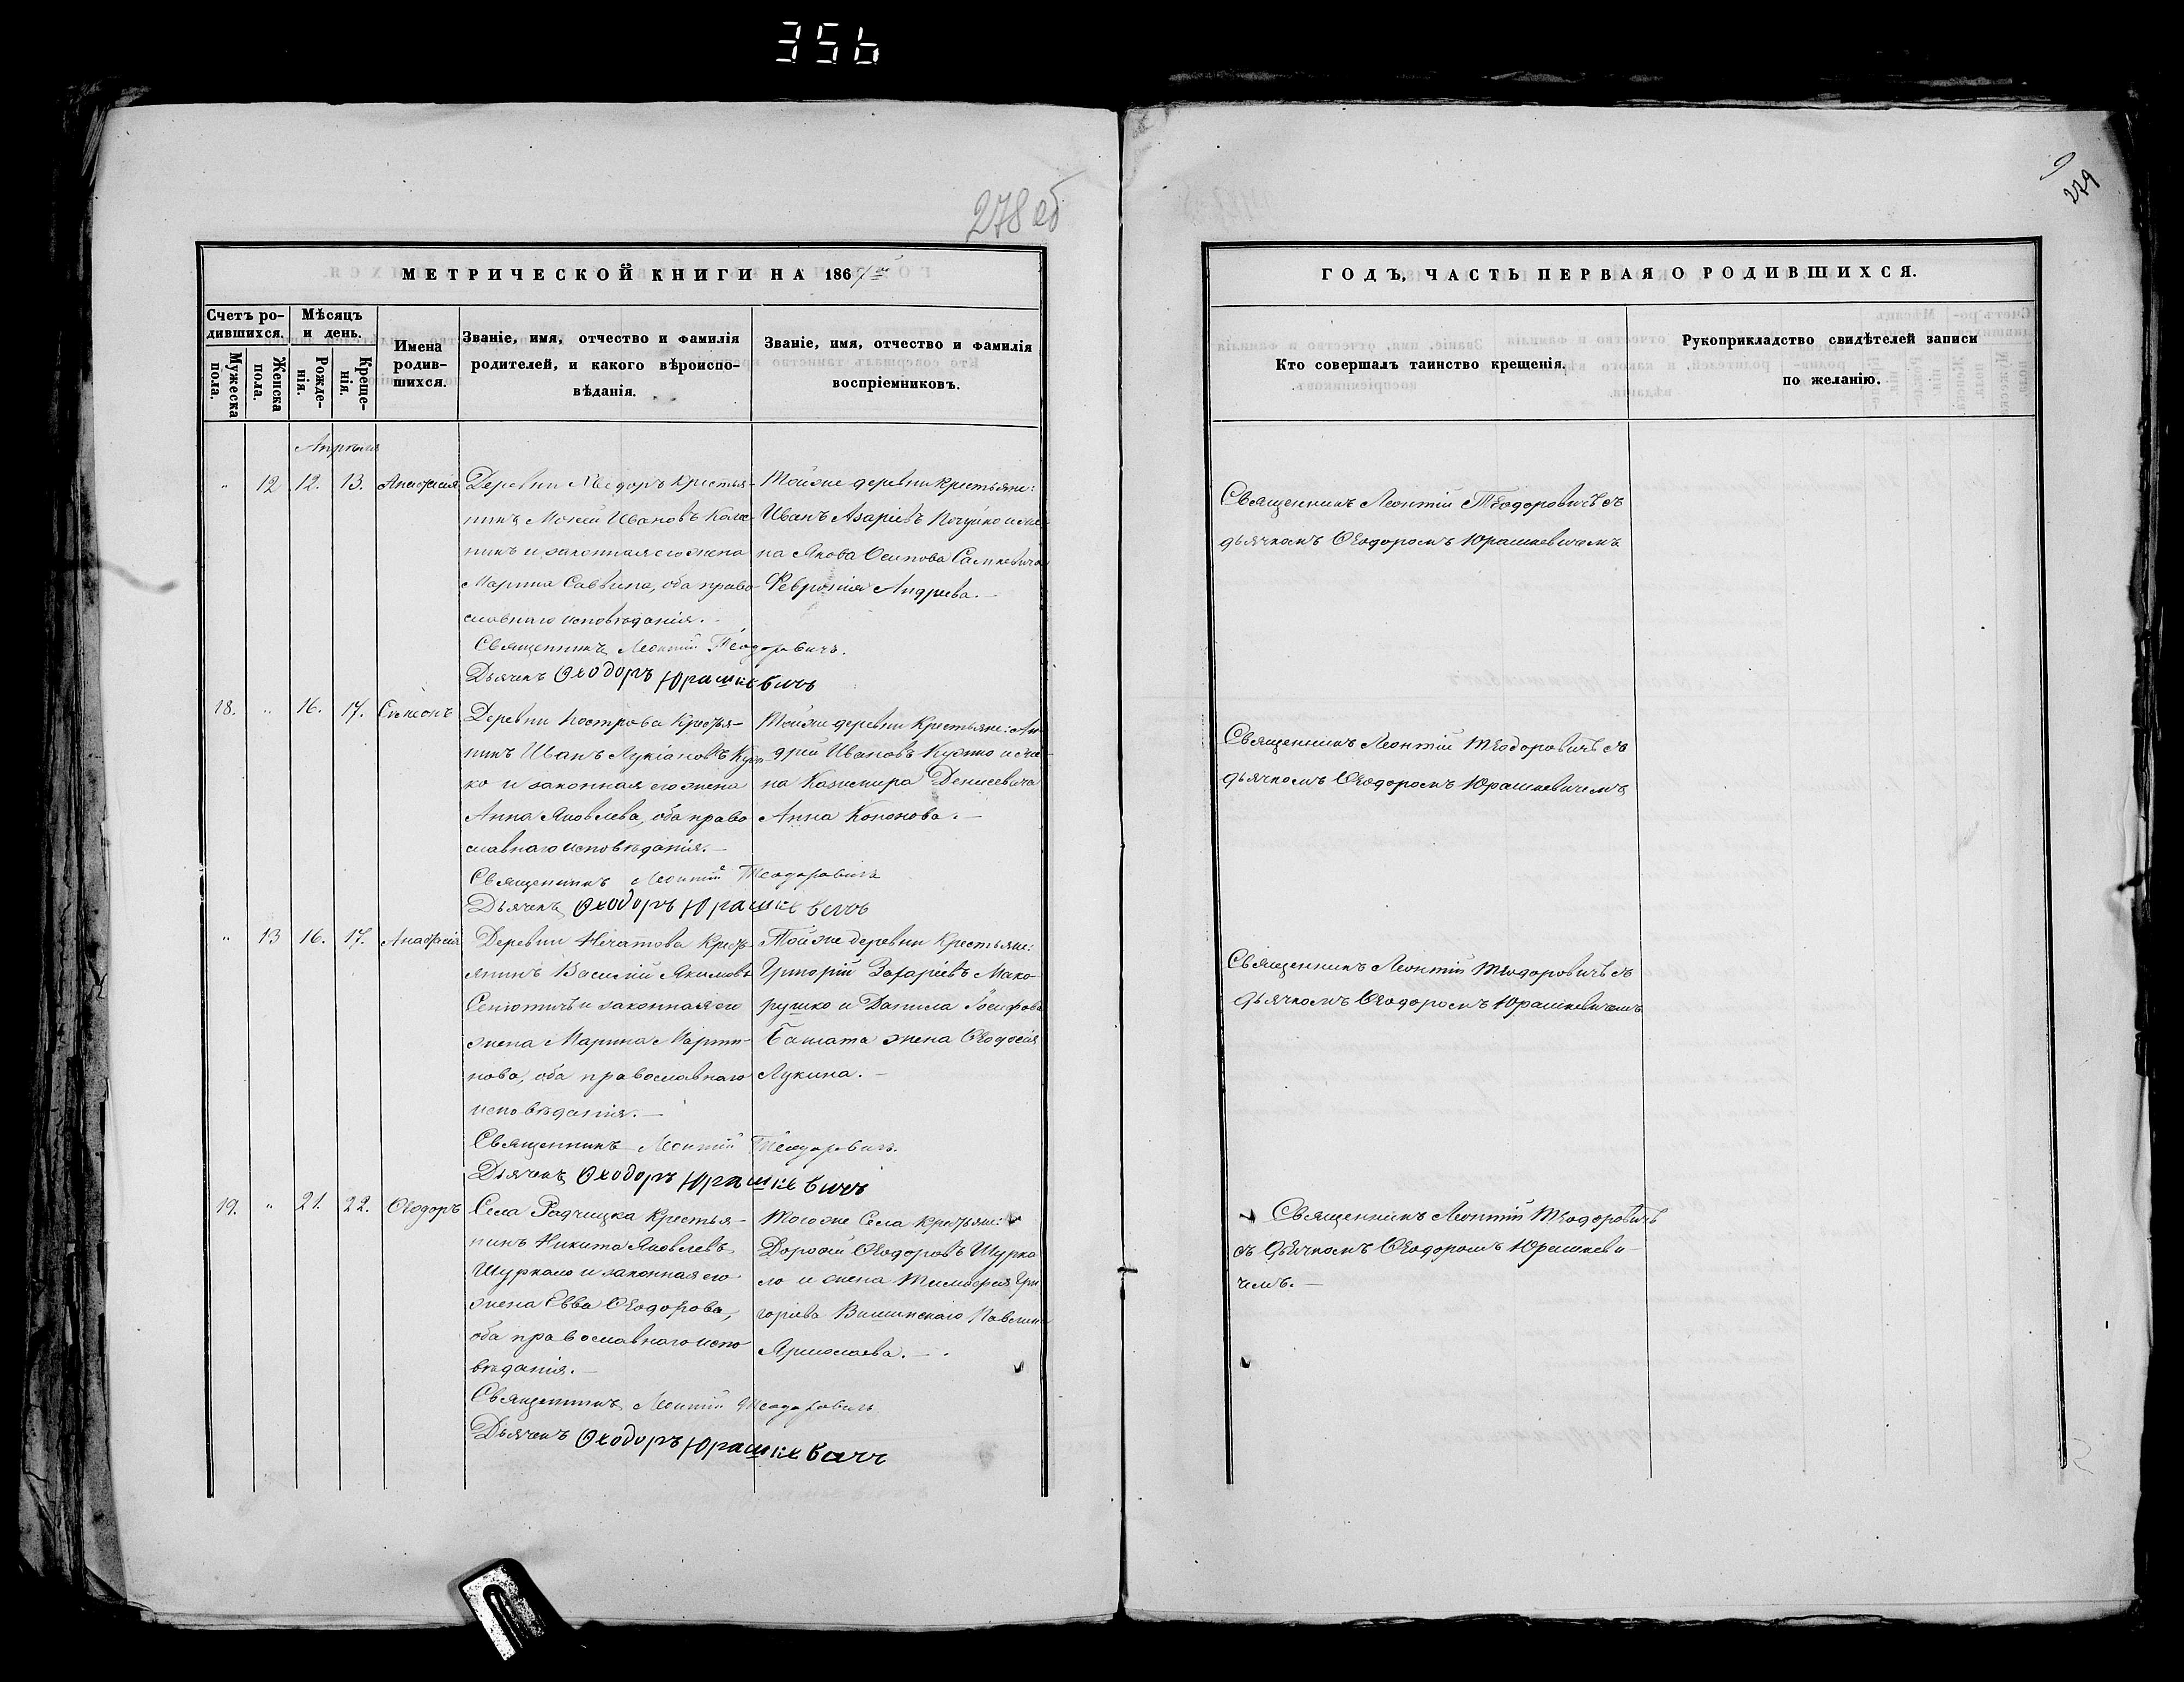 356
278 об
279
МЕТРИЧЕСКОЙ КНИГИ НА 1867 й
Счетъ ро-
дившихся.
Мужеска
пола.
Женска
пола.
Мѣсяцъ
и день.
Рожде-
нія.
Креще-
нія.
Имена
родив-
шихся.
Званіе, имя, отчество и фамилія
родителей, и какого вѣроиспо-
вѣданія.
Званіе, имя, отчество и фамилія
воспріемниковъ.
Апрѣля
" 12 12. 13. Анастасія
Деревни Хведоръ Крестья-
нинъ Моисей Ивановъ
и законная его жена
Марина Саввина, оба право-
славнаго исповѣданія.
Священникъ Леонтій Теодоровичъ.
Дьячекъ Ѳеодоръ Юрашкевичъ
Тойже деревни крестьяне:
Иванъ Азаріевъ и же-
на Якова Осипова Самкевича
Февронія Андреева.
18. " 16. 17. Симеонъ
Деревни Крестья-
нинъ Иванъ Лукіановъ Куз-
ко и законная его жена
Анна Яковлева, оба право
славнаго исповѣданія.
Священникъ Леонтій Теодоровичъ
Дьячекъ Ѳеодоръ Юрашкевичъ
Тойже деревни Крестьяне: Ан-
дрей Ивановъ и же-
на Казимира Денисевича
Анна Кононова.
" 13 16. 17. Анастасія
Деревни Нечатова Кресть-
янинъ Василій Якимовъ
Сенютичъ и законная его
жена Марина Марти-
нова, оба православнаго
исповѣданія.
Священникъ Леонтій Теодоровичъ.
Дьячекъ Ѳеодоръ Юрашкевичъ
Тойже деревни Крестьяне:
Григорій Захаріевъ Мако-
рушко и Данила Іосифова
Башата жена Ѳеодосія
Лукина.
19. " 21. 22. Ѳеодоръ
Села Радчицка Крестья-
нинъ Никита Яковлевъ
Шуркало и законная его
жена Евва Ѳеодорова,
оба православнаго испо
вѣданія.
Священникъ Леонтій Теодоровичъ
Дьячекъ Ѳеодоръ Юрашкевичъ
Тогоже Села Крестьяне:
Дорофей Ѳеодоровъ Шурка
ло и жена Тимофея Гри
горіева
Ярмолаева.
ГОДЪ, ЧАСТЬ ПЕРВАЯ О РОДИВШИХСЯ.
Кто совершалъ таинство крещенія.
Рукоприкладство свидѣтелей записи
по желанію.
Священникъ Леонтій Теодоровичъ съ
дьячкомъ Ѳеодоромъ Юрашкевичемъ
Священникъ Леонтій Теодоровичъ съ
дьячкомъ Ѳеодоромъ Юрашкевичемъ
Священникъ Леонтій Теодоровичъ съ
дьячкомъ Ѳеодоромъ Юрашкевичемъ
Священникъ Леонтій Теодоровичъ
съ дьячкомъ Ѳеодоромъ Юрашкеви-
чемъ.